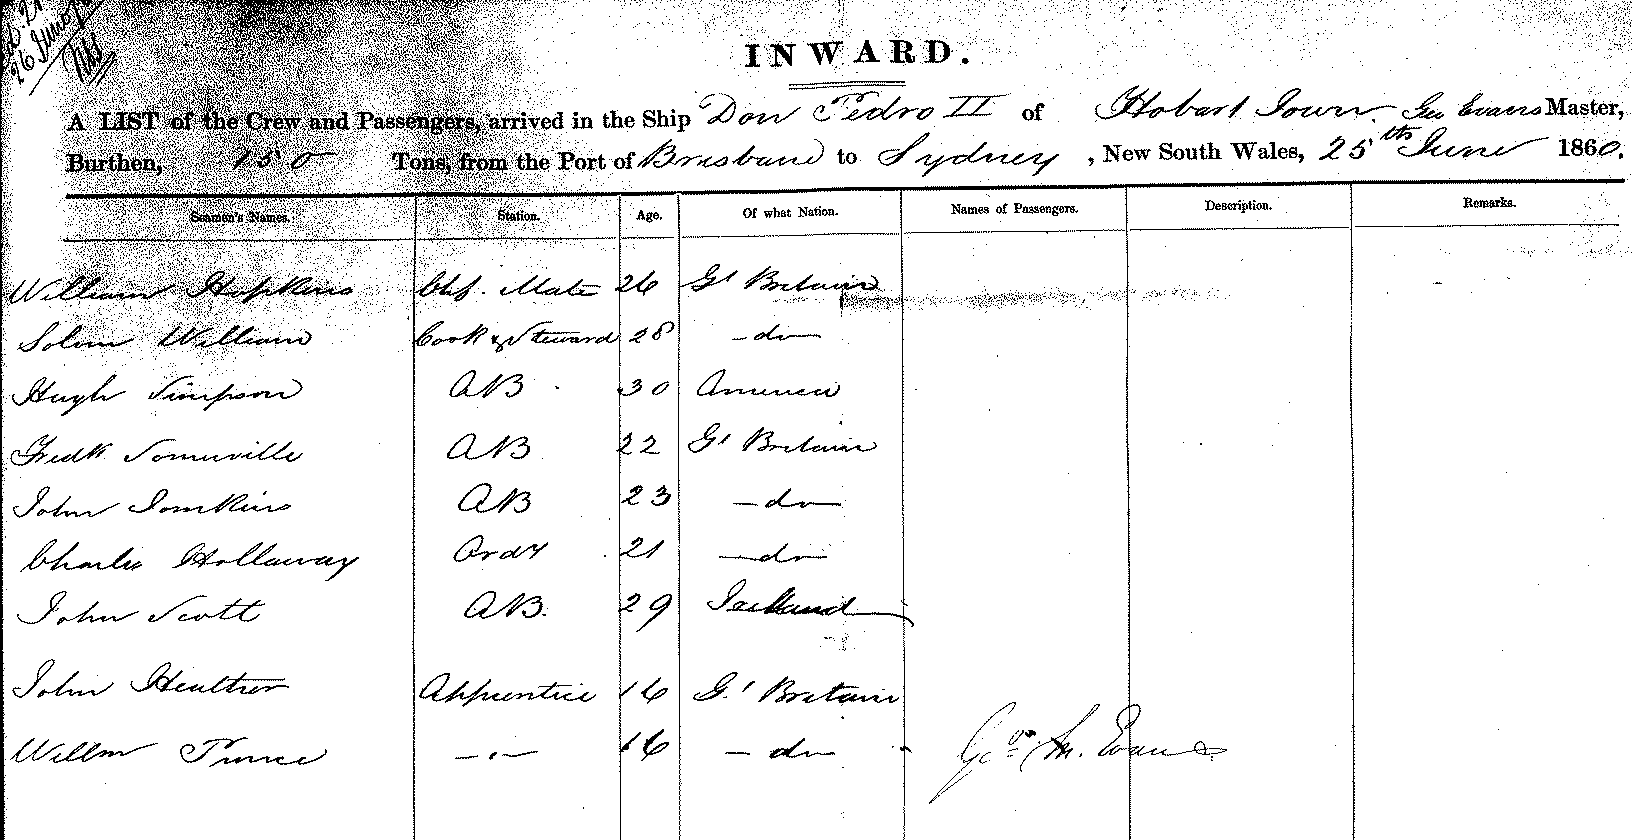 26 June
INWARD.
A LIST of the Crew and Passengers, arrived in the Ship Don Pedro II of Hobart Town. Geo Evans Master,
Burthen, 130 Tons, from the Port of Brisbane to Sydney, New South Wales, 25th June 1860.
Seamen's Names. Station. Age. Of what Nation. Names of Passengers. Description. Remarks.
William Hopkins Chf. Mate 26 Gt Britain
William Cook & Steward 28 – do –
Hugh Simpson AB 30 America
Fredk Somerville AB 22 Gt Britain
John Tomkins AB 23 – do –
Charles Hollaway Ordy 21 – do –
John Scott AB. 29
John Heather Apprentice 16 Gt Britain
Willm Prince – . – 16 – do
Geo. M. Evans